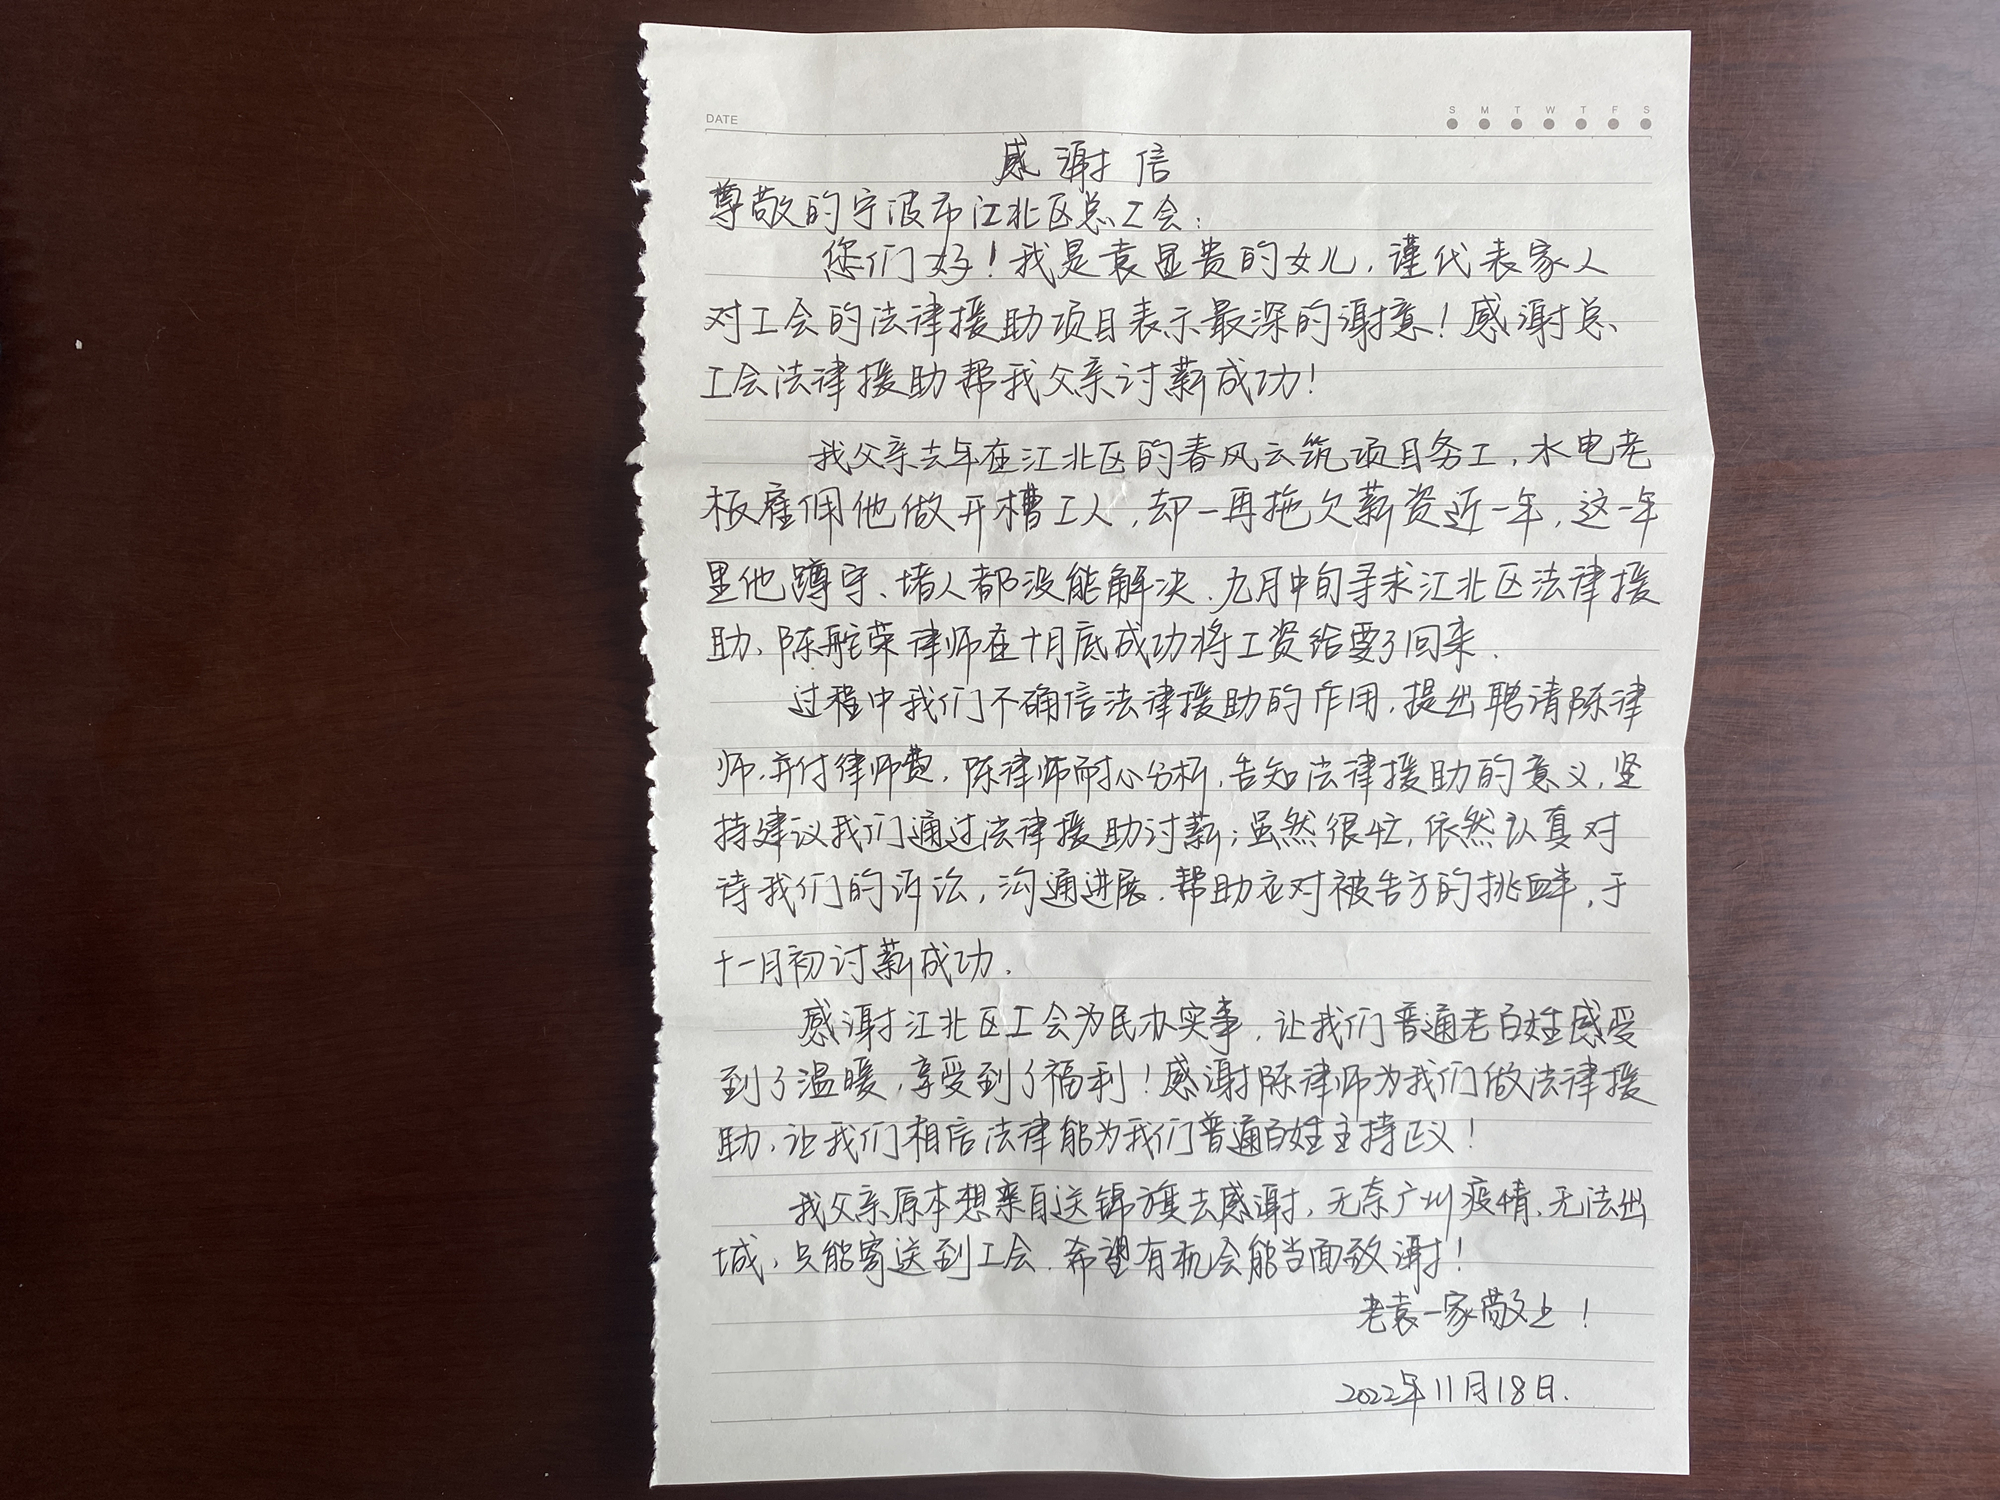 DATE
S M T W T F S
感谢信
尊敬的宁波市江北区总工会：
您们好！我是袁显贵的女儿，谨代表家人
对工会的法律援助项目表示最深的谢意！感谢总
工会法律援助帮我父亲讨薪成功！
我父亲去年在江北区的春风云筑项目务工，水电老
板雇佣他做开槽工人，却一再拖欠薪资近一年，这一年
里他蹲守、堵人都没能解决、九月中旬寻求江北区法律援
助、陈舵荣律师在十月底成功将工资给要了回来．
过程中我们不确信法律援助的作用，提出聘请陈律
师，并付律师费，陈律师耐心分析，告知法律援助的意义，坚
持建议我们通过法律援助讨薪；虽然很忙，依然认真对
待我们的诉讼，沟通进展．帮助应对被告方的挑衅，于
十一月初讨薪成功．
感谢江北区工会为民办实事，让我们普通老百姓感受
到了温暖，享受到了福利！感谢陈律师为我们做法律援
助，让我们相信法律能为我们普通百姓主持正义！
我父亲原本想亲自送锦旗去感谢，无奈广州疫情、无法出
城，只能寄送到工会．希望有机会能当面致谢！
老袁一家敬上！
2022年11月18日．